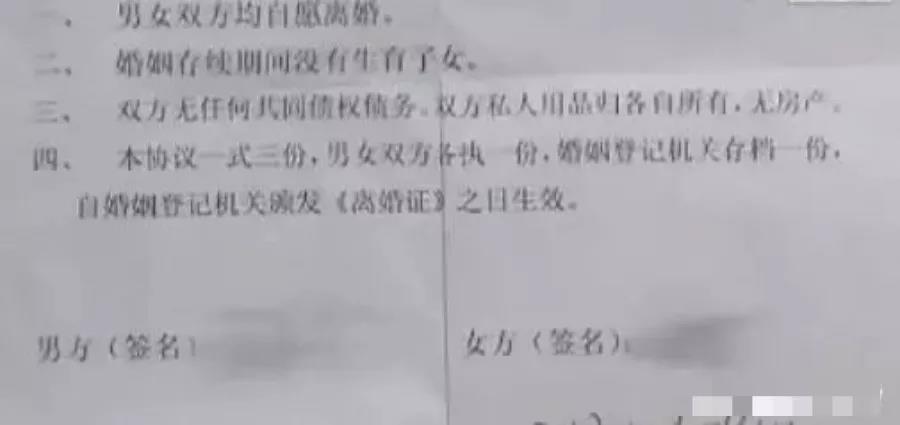 一、 男女双方均自愿离婚。
二、 婚姻存续期间没有生育子女。
三、 双方无任何共同债权债务。双方私人用品归各自所有，无房产。
四、 本协议一式三份，男女双方各执一份，婚姻登记机关存档一份，
自婚姻登记机关颁发《离婚证》之日生效。
男方（签名）
女方（签名）：